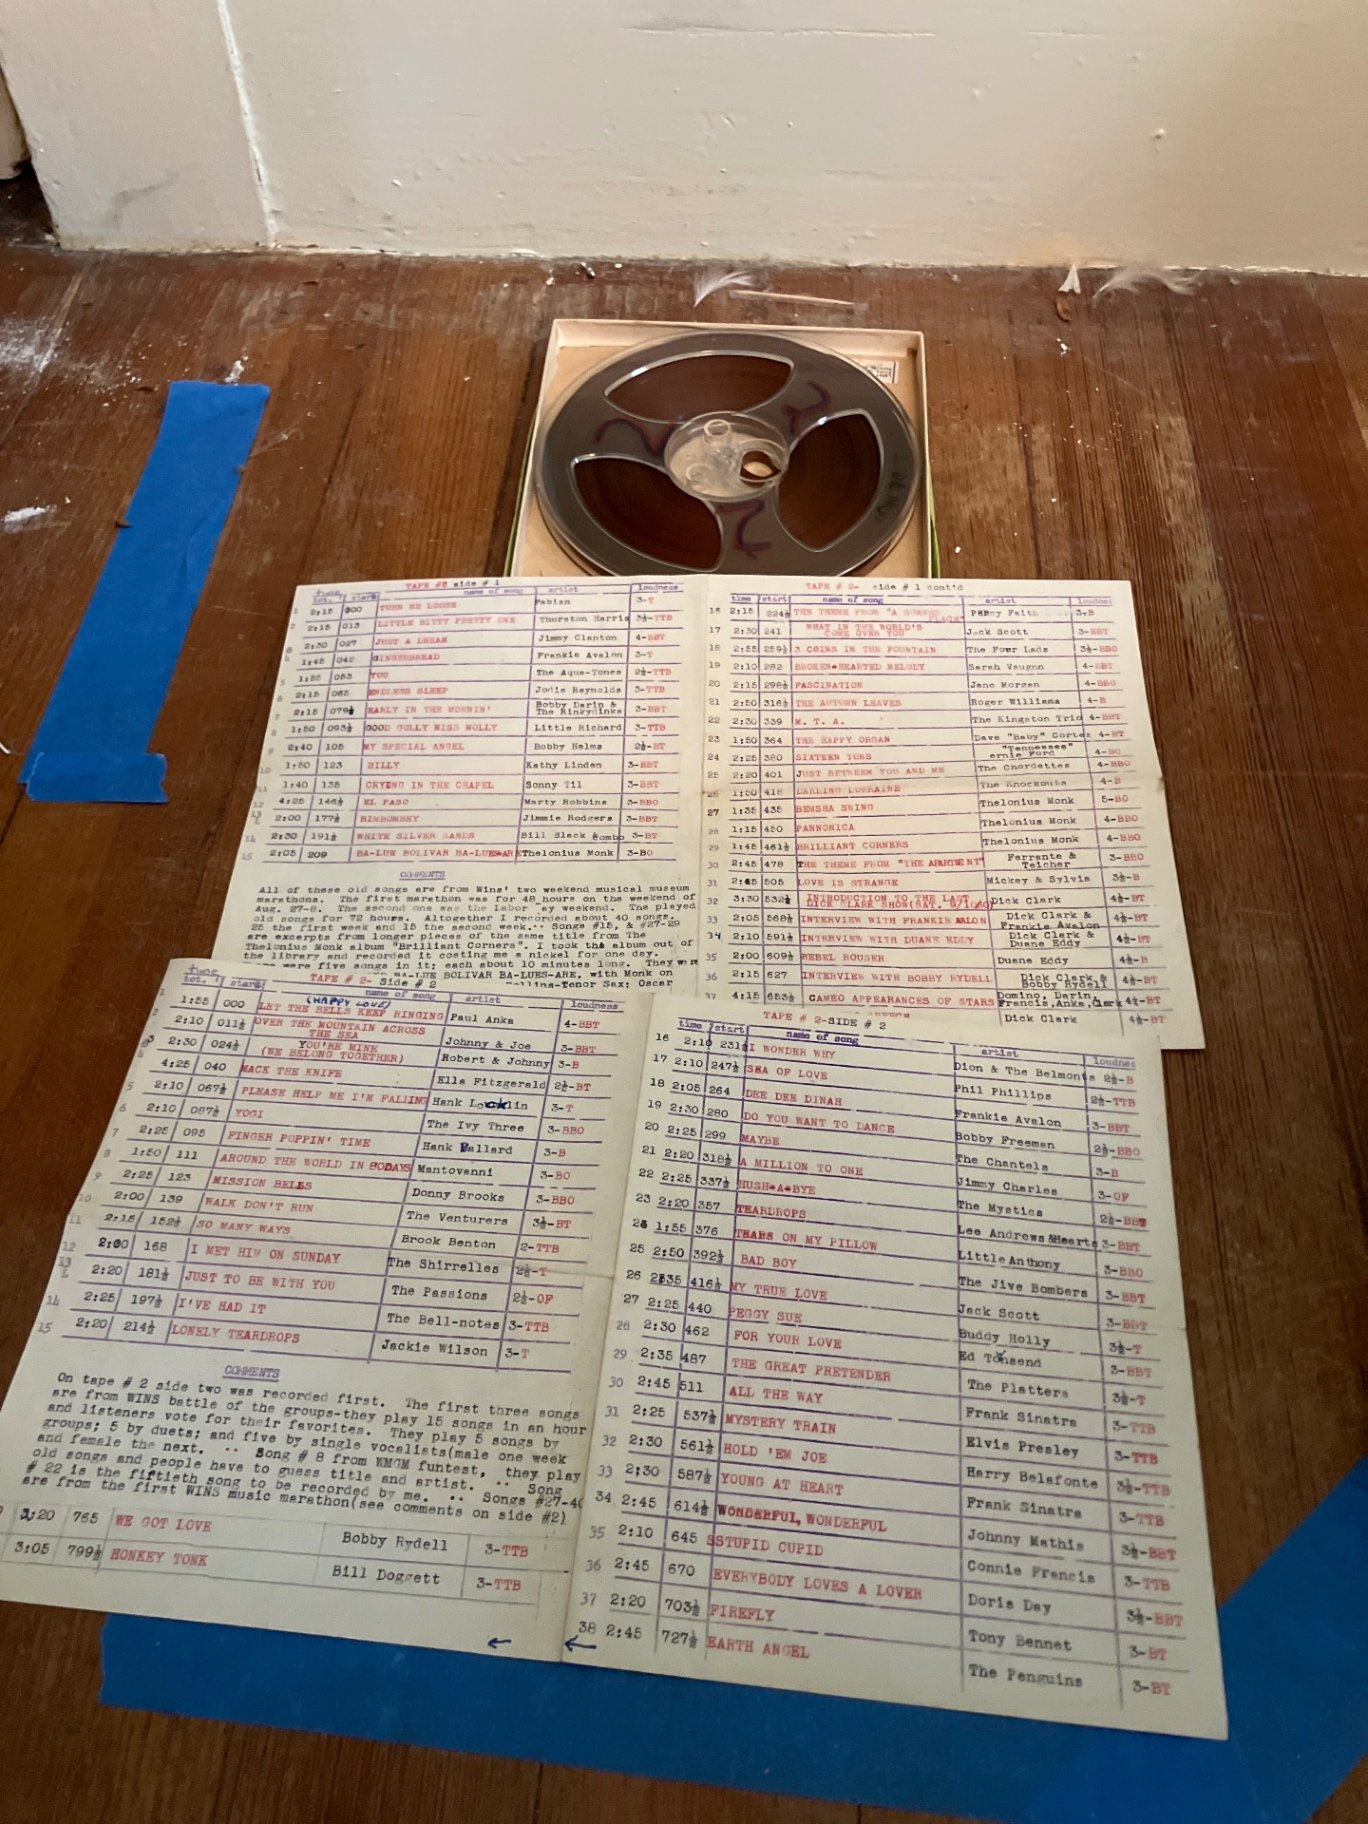 TAPE #2 side # 1
time tot. start name of song artist loudness
1 2:15 000 TURN ME LOOSE Fabian 3-T
2 2:15 013 LITTLE BITTY PRETTY ONE Thurston Harris 3½-TTB
2:30 027 JUST A DREAM Jimmy Clanton 4-BBT
1:45 042 GINGERBREAD Frankie Avalon 3-T
5 1:55 053 YOU The Aqua-Tones 2½-TTB
6 2:15 065 ENDLESS SLEEP Jodie Reynolds 3-TTB
7 2:15 079½ EARLY IN THE MORNIN' Bobby Darin & The Rinkydinks 3-BBT
8 1:50 093½ GOOD GOLLY MISS MOLLY Little Richard 3-TTB
9 2:40 105 MY SPECIAL ANGEL Bobby Helms 2½-BT
10 1:50 123 BILLY Kathy Linden 3-BBT
11 1:40 135 CRYING IN THE CHAPEL Sonny Til 3-BBT
12 4:25 146½ EL PASO Marty Robbins 3-BBO
13 2:00 177½ BIMBOMBEY Jimmie Rodgers 3-BBT
14 2:30 191½ WHITE SILVER SANDS Bill Black Combo 3-BT
15 2:05 209 BA-LUE BOLIVAR BA-LUES-ARE Thelonius Monk 3-BO
COMMENTS
All of these old songs are from Wins' two weekend musical museum
marathons. The first marathon was for 48 hours on the weekend of
Aug. 27-8. The second one was the Labor ay weekend. The played
old songs for 72 hours. Altogether I recorded about 40 songs.
25 the first week and 15 the second week. Songs #15, & #27-29
are excerpts from longer pieces of the same title from The
Thelonius Monk album "Brilliant Corners". I took the album out of
the library and recorded it costing me a nickel for one day.
were five songs in it; each about 10 minutes long. They were
BA-LUE BOLIVAR BA-LUES-ARE, with Monk on
Tenor Sax; Oscar
TAPE # 2- side # 1 cont'd
time start name of song artist loudnes
16 2:15 224½ THE THEME FROM "A SUMMER PLACE" Percy Faith 3-B
17 2:30 241 WHAT IN THE WORLD'S COME OVER YOU Jack Scott 3-BBT
18 2:55 259½ 3 COINS IN THE FOUNTAIN The Four Lads 3½-BBO
19 2:10 282 BROKEN-HEARTED MELODY Sarah Vaughn 4-BBT
20 2:15 298½ FASCINATION Jane Morgan 4-BBO
21 2:50 316½ THE AUTUMN LEAVES Roger Williams 4-B
22 2:30 339 M. T. A. The Kingston Trio 4-BBT
23 1:50 364 THE HAPPY ORGAN Dave "Baby" Cortez 4-BT
24 2:25 380 SIXTEEN TONS "Tennessee" ernie Ford 4-BO
25 2:20 401 JUST BETWEEN YOU AND ME The Chordettes 4-BBO
26 1:50 418 DARLING LORRAINE The Knockouts 4-B
27 1:35 435 BEMSHA SWING Thelonius Monk 5-BO
28 1:15 450 PANNONICA Thelonius Monk 4-BBO
29 1:45 461½ BRILLIANT CORNERS Thelonius Monk 4-BBO
30 2:45 478 THE THEME FROM "THE APARTMENT" Ferrante & Teicher 3-BBO
31 2:45 505 LOVE IS STRANGE Mickey & Sylvia 3½-B
32 3:30 532½ INTRODUCTION TO THE LAST DICK CLARK SHOW(SAT. 9/10/60) Dick Clark 4½-BT
33 2:05 568½ INTERVIEW WITH FRANKIE AVALON Dick Clark & Frankie Avalon 4½-BT
34 2:10 591½ INTERVIEW WITH DUANE EDDY Dick Clark & Duane Eddy 4½-BT
35 2:00 609½ REBEL ROUSER Duane Eddy 4½-B
36 2:15 627 INTERVIEW WITH BOBBY RYDELL Dick Clark & Bobby Rydell 4½-BT
37 4:15 653½ CAMEO APPEARANCES OF STARS Domino, Darin, Francis, Anka, Clark 4½-BT
SPEECH Dick Clark 4½-BT
TAPE # 2- Side # 2
time tot. start name of song artist loudness
1 1:55 000 LET THE BELLS KEEP RINGING (HAPPY LOVE) Paul Anka 4-BBT
2 2:10 011½ OVER THE MOUNTAIN ACROSS THE SEA Johnny & Joe 3-BBT
3 2:30 024½ YOU'RE MINE (WE BELONG TOGETHER) Robert & Johnny 3-B
4:25 040 MACK THE KNIFE Ella Fitzgerald 2½-BT
5 2:10 067½ PLEASE HELP ME I'M FALLING Hank Locklin 3-T
6 2:10 087½ YOGI The Ivy Three 3-BBO
7 2:25 095 FINGER POPPIN' TIME Hank Ballard 3-B
8 1:50 111 AROUND THE WORLD IN 80DAYS Mantovanni 3-BO
9 2:25 123 MISSION BELLS Donny Brooks 3-BBO
10 2:00 139 WALK DON'T RUN The Venturers 3½-BT
11 2:15 152½ SO MANY WAYS Brook Benton 2-TTB
12 2:00 168 I MET HIM ON SUNDAY The Shirrelles 2½-T
13 2:20 181½ JUST TO BE WITH YOU The Passions 2½-OF
14 2:25 197½ I'VE HAD IT The Bell-notes 3-TTB
15 2:20 214½ LONELY TEARDROPS Jackie Wilson 3-T
COMMENTS
On tape # 2 side two was recorded first. The first three songs
are from WINS battle of the groups-they play 15 songs in an hour
and listeners vote for their favorites. They play 5 songs by
groups; 5 by duets; and five by single vocalists(male one week
and female the next. .. Song # 8 from WMGM funtest, they play
old songs and people have to guess title and artist. .. Song
# 22 is the fiftieth song to be recorded by me. .. Songs #27-40
are from the first WINS music marathon(see comments on side #2)
3:20 765 WE GOT LOVE Bobby Rydell 3-TTB
3:05 799½ HONKEY TONK Bill Doggett 3-TTB
TAPE # 2-SIDE # 2
time start name of song artist loudnes
16 2:10 231½ I WONDER WHY Dion & The Belmonts 2½-B
17 2:10 247½ SEA OF LOVE Phil Phillips 2½-TTB
18 2:05 264 DEE DEE DINAH Frankie Avalon 3-BBT
19 2:30 280 DO YOU WANT TO DANCE Bobby Freeman 2½-BBO
20 2:25 299 MAYBE The Chantels 3-B
21 2:20 318½ A MILLION TO ONE Jimmy Charles 3-OF
22 2:25 337½ HUSH-A-BYE The Mystics 2½-BBT
23 2:20 357 TEARDROPS Lee Andrews &Hearts 3-BBT
24 1:55 376 TEARS ON MY PILLOW Little Anthony 3-BBO
25 2:50 392½ BAD BOY The Jive Bombers 3-BBT
26 2:35 416½ MY TRUE LOVE Jack Scott 3-BBT
27 2:25 440 PEGGY SUE Buddy Holly 3½-T
28 2:30 462 FOR YOUR LOVE Ed Townsend 3-BBT
29 2:35 487 THE GREAT PRETENDER The Platters 3½-T
30 2:45 511 ALL THE WAY Frank Sinatra 3-TTB
31 2:25 537½ MYSTERY TRAIN Elvis Presley 3-TTB
32 2:30 561½ HOLD 'EM JOE Harry Belafonte 3½-TTB
33 2:30 587½ YOUNG AT HEART Frank Sinatra 3-TTB
34 2:45 614½ WONDERFUL, WONDERFUL Johnny Mathis 3½-BBT
35 2:10 645 SSTUPID CUPID Connie Francis 3-TTB
36 2:45 670 EVERYBODY LOVES A LOVER Doris Day 3½-BBT
37 2:20 703½ FIREFLY Tony Bennet 3-BT
38 2:45 727½ EARTH ANGEL The Penguins 3-BT